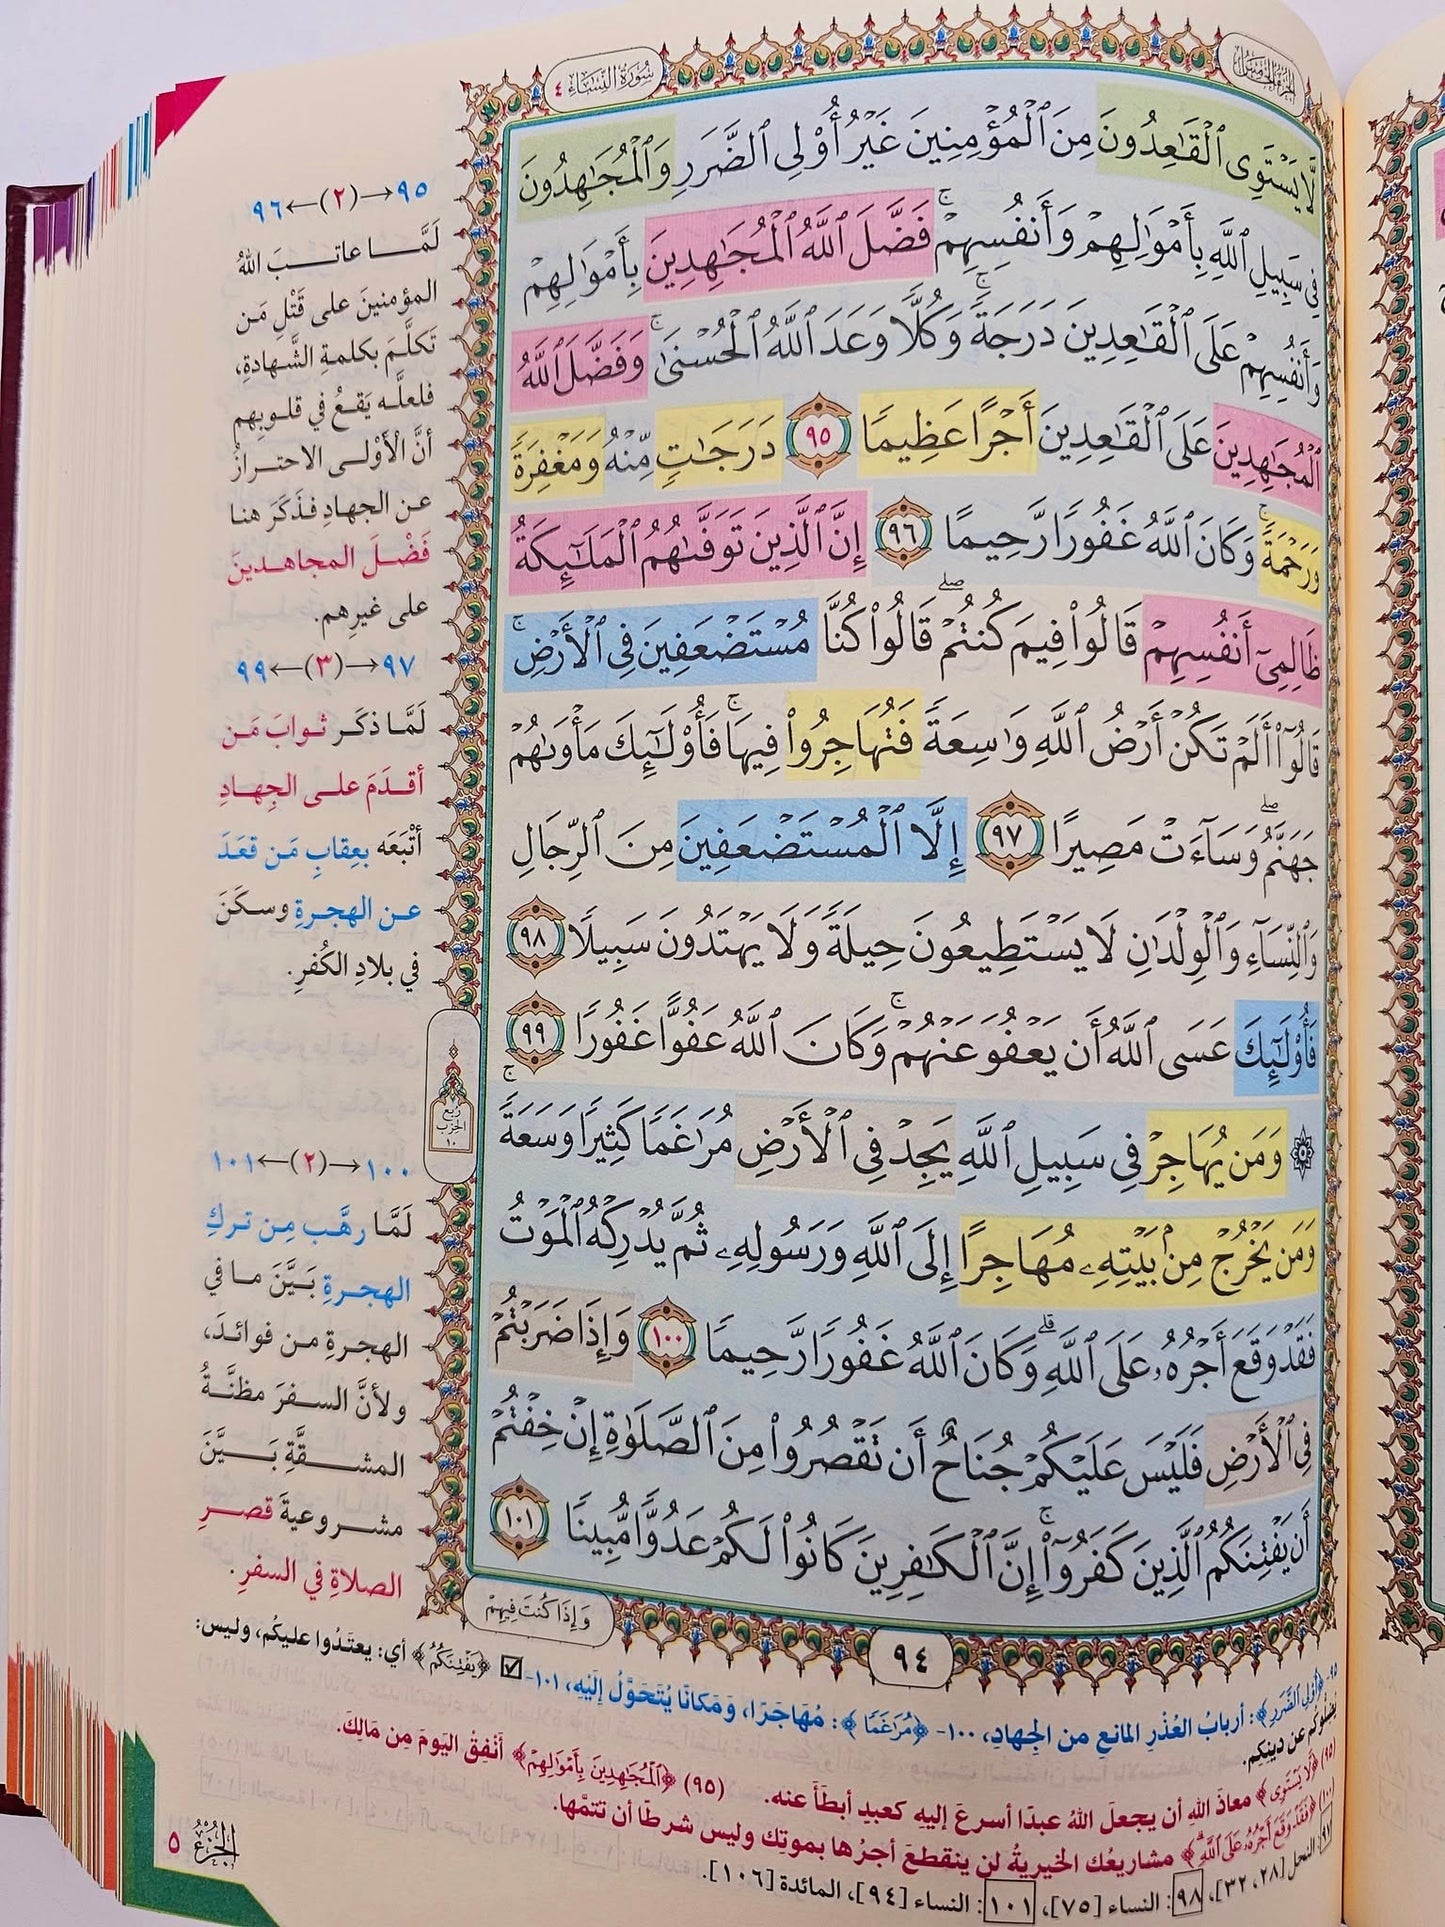 الجزء الخامس
سورة النساء ٤
لَّا يَسْتَوِى ٱلْقَٰعِدُونَ مِنَ ٱلْمُؤْمِنِينَ غَيْرُ أُو۟لِى ٱلضَّرَرِ وَٱلْمُجَٰهِدُونَ
فِى سَبِيلِ ٱللَّهِ بِأَمْوَٰلِهِمْ وَأَنفُسِهِمْ ۚ فَضَّلَ ٱللَّهُ ٱلْمُجَٰهِدِينَ بِأَمْوَٰلِهِمْ
وَأَنفُسِهِمْ عَلَى ٱلْقَٰعِدِينَ دَرَجَةً ۚ وَكُلًّا وَعَدَ ٱللَّهُ ٱلْحُسْنَىٰ ۚ وَفَضَّلَ ٱللَّهُ
ٱلْمُجَٰهِدِينَ عَلَى ٱلْقَٰعِدِينَ أَجْرًا عَظِيمًا ٩٥ دَرَجَٰتٍ مِّنْهُ وَمَغْفِرَةً
وَرَحْمَةً ۚ وَكَانَ ٱللَّهُ غَفُورًا رَّحِيمًا ٩٦ إِنَّ ٱلَّذِينَ تَوَفَّىٰهُمُ ٱلْمَلَٰٓئِكَةُ
ظَالِمِىٓ أَنفُسِهِمْ قَالُوا۟ فِيمَ كُنتُمْ ۖ قَالُوا۟ كُنَّا مُسْتَضْعَفِينَ فِى ٱلْأَرْضِ ۚ
قَالُوٓا۟ أَلَمْ تَكُنْ أَرْضُ ٱللَّهِ وَٰسِعَةً فَتُهَاجِرُوا۟ فِيهَا ۚ فَأُو۟لَٰٓئِكَ مَأْوَىٰهُمْ
جَهَنَّمُ ۖ وَسَآءَتْ مَصِيرًا ٩٧ إِلَّا ٱلْمُسْتَضْعَفِينَ مِنَ ٱلرِّجَالِ
وَٱلنِّسَآءِ وَٱلْوِلْدَٰنِ لَا يَسْتَطِيعُونَ حِيلَةً وَلَا يَهْتَدُونَ سَبِيلًا ٩٨
فَأُو۟لَٰٓئِكَ عَسَى ٱللَّهُ أَن يَعْفُوَ عَنْهُمْ ۚ وَكَانَ ٱللَّهُ عَفُوًّا غَفُورًا ٩٩
۞ وَمَن يُهَاجِرْ فِى سَبِيلِ ٱللَّهِ يَجِدْ فِى ٱلْأَرْضِ مُرَٰغَمًا كَثِيرًا وَسَعَةً ۚ
وَمَن يَخْرُجْ مِنۢ بَيْتِهِۦ مُهَاجِرًا إِلَى ٱللَّهِ وَرَسُولِهِۦ ثُمَّ يُدْرِكْهُ ٱلْمَوْتُ
فَقَدْ وَقَعَ أَجْرُهُۥ عَلَى ٱللَّهِ ۗ وَكَانَ ٱللَّهُ غَفُورًا رَّحِيمًا ١٠٠ وَإِذَا ضَرَبْتُمْ
فِى ٱلْأَرْضِ فَلَيْسَ عَلَيْكُمْ جُنَاحٌ أَن تَقْصُرُوا۟ مِنَ ٱلصَّلَوٰةِ إِنْ خِفْتُمْ
أَن يَفْتِنَكُمُ ٱلَّذِينَ كَفَرُوٓا۟ ۚ إِنَّ ٱلْكَٰفِرِينَ كَانُوا۟ لَكُمْ عَدُوًّا مُّبِينًا ١٠١
وَإِذَا كُنتَ فِيهِمْ
٩٤
٩٥→(٢)←٩٦
لَمَّا عاتبَ اللهُ
المؤمنينَ على قَتْلِ مَن
تَكلَّمَ بكلمةِ الشَّهادةِ،
فلعلَّه يَقعُ في قلوبِهم
أنَّ الأَوْلى الاحترازُ
عن الجهادِ فذَكَرَ هنا
فَضْلَ المجاهدينَ
على غيرِهم.
٩٧→(٣)←٩٩
لَمَّا ذكَر ثوابَ مَن
أقدَمَ على الجِهادِ
أتْبَعَه بعِقابِ مَن قعَدَ
عن الهجرةِ وسكَنَ
في بلادِ الكُفرِ.
ربع
الحزب
١٠
١٠٠→(٢)←١٠١
لَمَّا رهَّب مِن تركِ
الهجرةِ بَيَّنَ ما في
الهجرةِ من فوائدَ،
ولأنَّ السفرَ مظنَّةُ
المشقَّةِ بَيَّنَ
مشروعيةَ قصرِ
الصلاةِ في السفرِ.
٩٥- ﴿أُو۟لِى ٱلضَّرَرِ﴾: أربابُ العُذْرِ المانعِ من الجِهادِ، ١٠٠- ﴿مُرَٰغَمًا﴾: مُهَاجَرًا، وَمَكانًا يُتَحَوَّلُ إلَيْهِ، ١٠١- ☑ ﴿يَفْتِنَكُمُ﴾ أي: يعتَدُوا عليكُم، وليس:
يُضِلُّوكم عن دينِكم.
(٩٥) ﴿لَّا يَسْتَوِى﴾ معاذَ اللهِ أن يجعلَ اللهُ عبدًا أسرعَ إليهِ كعبدٍ أبطَأَ عنه. (٩٥) ﴿ٱلْمُجَٰهِدِينَ بِأَمْوَٰلِهِمْ﴾ أَنْفِقْ اليَومَ مِن مَالِكَ.
(١٠٠) ﴿فَقَدْ وَقَعَ أَجْرُهُۥ عَلَى ٱللَّهِ﴾ مشاريعُك الخيريةُ لن ينقطعَ أجرُها بموتِك وليس شرطًا أن تتمَّها.
٩٧: النحل [٢٨، ٣٢]، ٩٨: النساء [٧٥]، ١٠١: النساء [٩٤]، المائدة [١٠٦].
الجزء
٥